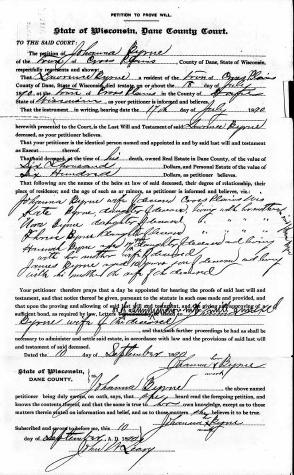 PETITION TO PROVE WILL.
State of Wisconsin, Dane County Court.
TO THE SAID COURT:
The Petition of Johanna Byrne
of the Town of Cross Plains County of Dane, State of Wisconsin,
respectfully represents and shows:
That Lawrence Byrne a resident of the Town of Cross Plains
County of Dane, State of Wisconsin, died testate, on or about the 18 day of July
1890 at the Town of Cross Plains in the County of Dane
State of Wisconsin, as your petitioner is informed and believes.
That the instrument, in writing, bearing date the 17th day of July 1890
herewith presented to the Court, is the Last Will and Testament of said Lawrence Byrne
deceased, as your petitioner believes.
That your petitioner is the identical person named and appointed in and by said last will and testament
as Execut thereof.
That said deceased, at the time of his death, owned Real Estate in Dane County, of the value of
Six Thousand Dollars, and Personal Estate of the value of
Six Hundred Dollars, as petitioner believes.
That following are the names of the heirs at law of said deceased, their degree of relationship, their
place of residence; and the age of such as are minors, as petitioner is informed and believes, viz:
Johanna Byrne wife of deceased Cross Plains Wis
Kate Byrne, daughter of deceased, living with
Rose Byrne daughter of deceased
Byrne daughter
Hannah Byrne daughter of deceased and living
with her mother wife of deceased
James Byrne son of deceased and living
with his mother the wife of the deceased
Your petitioner therefore prays that a day be appointed for hearing the proofs of said last will and
testament, and that notice thereof be given, pursuant to the statute in such case made and provided, and
that upon the proving and allowing of said last will and testament, and the giving of
sufficient bond, as required by law, Letters
Byrne wife of the deceased
and that such further proceedings be had as shall be
necessary to administer and settle said estate, in accordance with law and the provisions of the said last will
and testament of said deceased.
Dated the 10 day of September 1890
Johanna x Byrne
mark
State of Wisconsin,
DANE COUNTY.
Johanna Byrne the above named
petitioner being duly sworn, on oath, says, that she heard read the foregoing petition, and
knows the contents thereof, and that the same is true to her own knowledge, except as to those
matters therein stated on information and belief, and as to those matters she believes it to be true.
Subscribed and sworn to before me, this 10
day of September A. D. 1890
Johanna x Byrne
mark
John